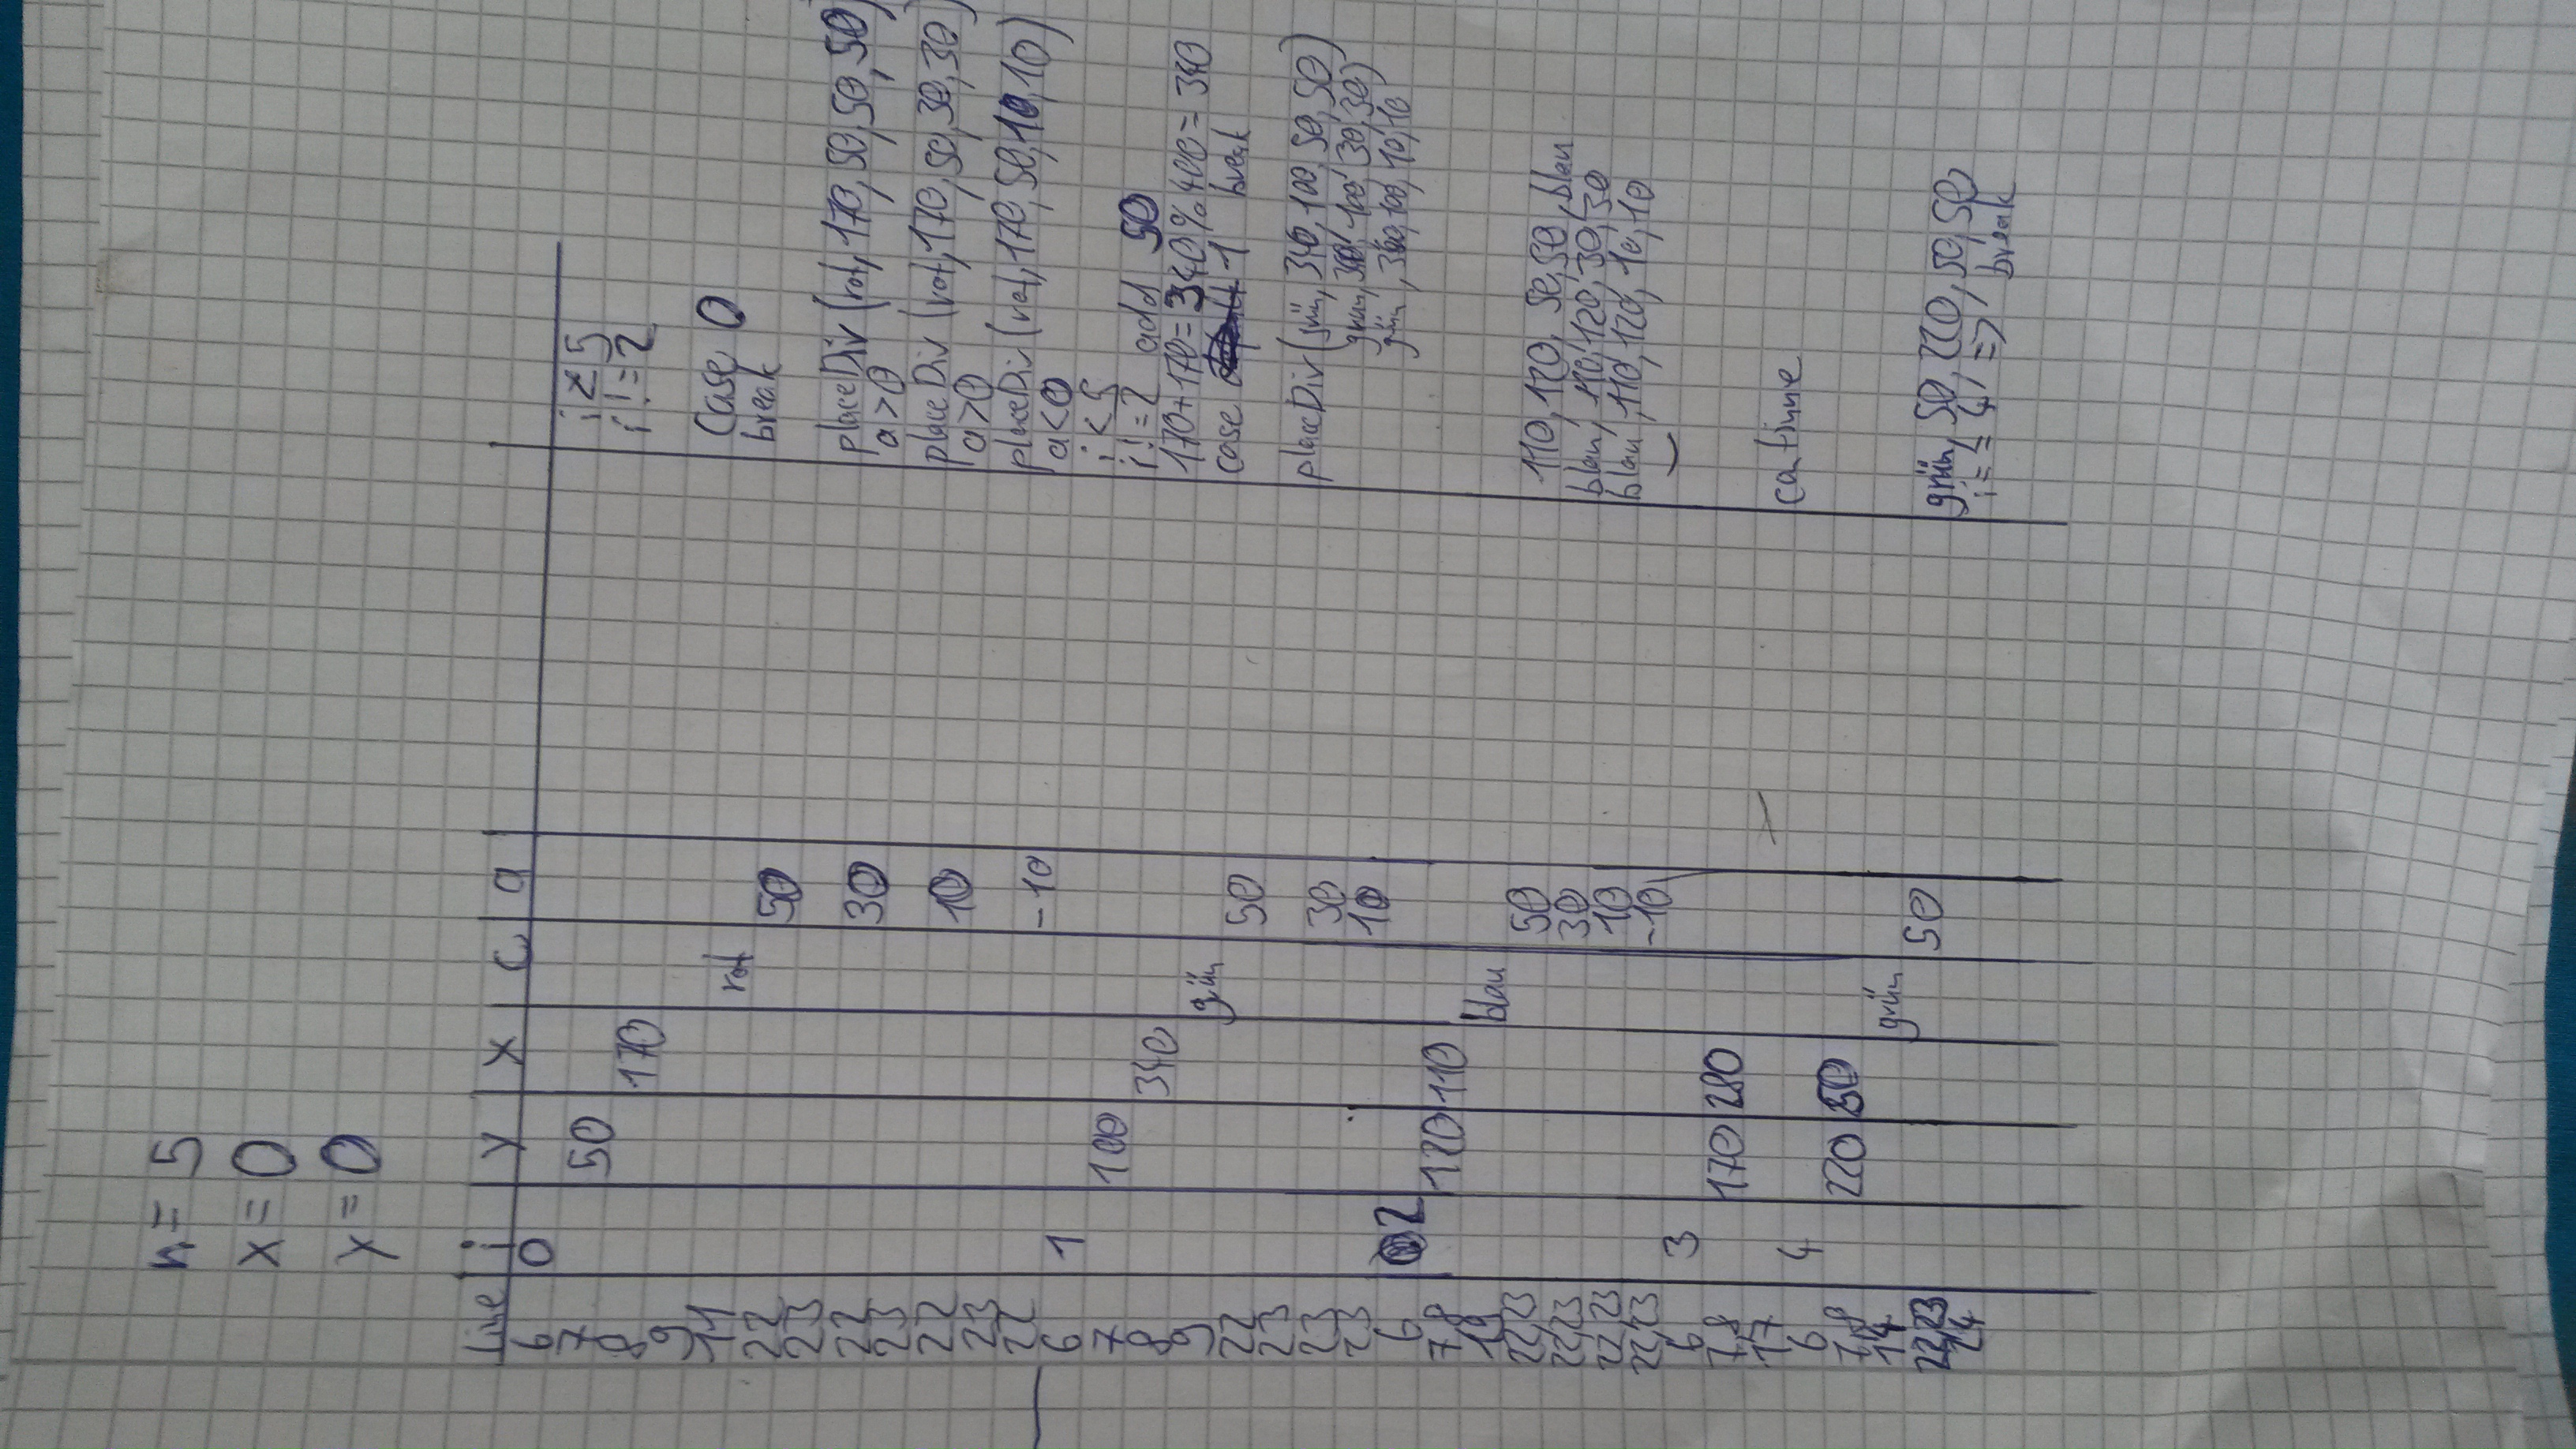 n = 5
x = 0
y = 0
Line i y x c a
6 0
7 50 i ≥ 5
8 170 i != 2
9
11 rot Case 0
22 50 break
23
22 30 placeDiv (rot, 170, 50, 50, 50)
23 a > 0
22 10 placeDiv (rot, 170, 50, 30, 30)
23 a > 0
22 -10 placeDiv (rot, 170, 50, 10, 10)
6 1 a < 0
7 100 i < 5
8 340 i != 2 add 50
9 grün 170 + 170 = 340 % 400 = 340
22 50 case 1 break
23
23 30 placeDiv (grün, 340, 100, 50, 50)
23 10 grün, 340, 100, 30, 30)
6 2 grün, 340, 100, 10, 10
7,8 120 110
19 blau
22,23 50 110, 120, 50, 50, blau
22,23 30 blau, 110, 120, 30, 30
22,23 10 blau, 110, 120, 10, 10
22,23 -10
6 3
7,8 170 280
17 continue
6 4
7,8 220 50
14 grün
22,23 50 grün, 50, 220, 50, 50
24 i == 4 => break